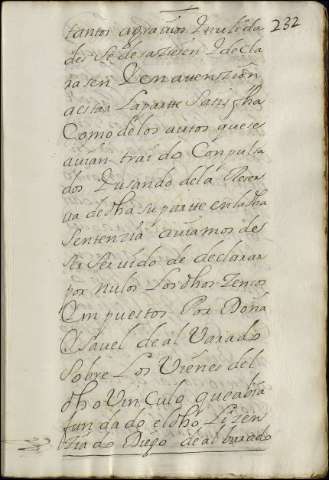 232
tantos agravios y nuleda
des se desaziesen y decla
rasen y en atenszion
a estar la parte satisfha
como de los autos que se
avian traido conpulsa
dos y usando de la reser
va de dha su parte en la dha
sentenzia aviamos de
ser servido de declarar
por nulos los dhos zensos
ympuestos por doña
ysavel de alvarado
sobre los vienes del
dho vinculo que abia
fundado el dho lizen
ziado diego de albarado